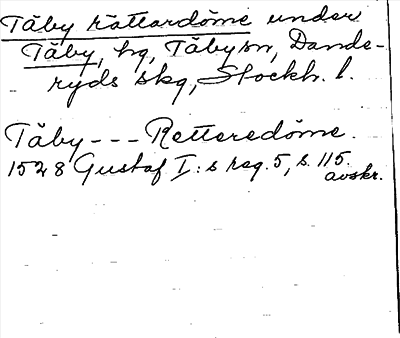 Täby rättardöme under
Täby, hg, Täby sn, Dande-
ryds skg, Stockh. l.
Täby --- Retteredöme.
1528 Gustaf I:s reg. 5, s. 115.
avskr.